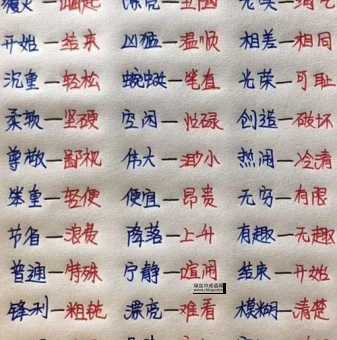 开始—结束 凶猛—温顺 相差—相同
沉重—轻松 蜿蜒—笔直 光荣—可耻
柔软—坚硬 空闲—忙碌 创造—破坏
尊敬—鄙视 伟大—渺小 热闹—冷清
笨重—轻便 便宜—昂贵 无穷—有限
节省—浪费 降落—上升 有趣—无趣
普通—特殊 宁静—喧闹 结束—开始
锋利—粗钝 漂亮—难看 模糊—清楚